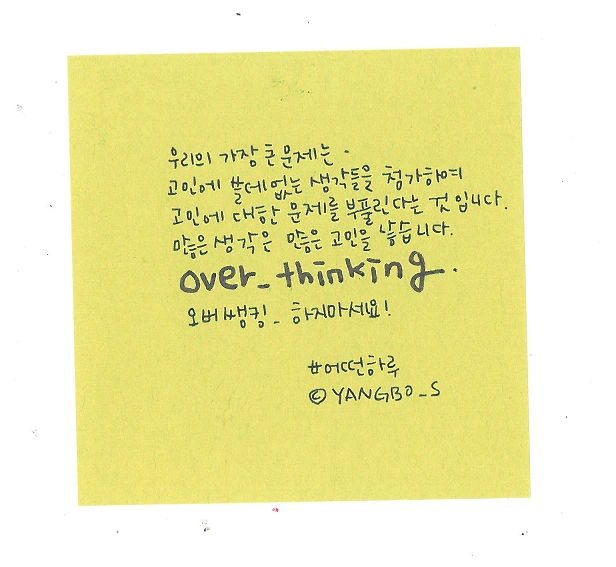 우리의 가장 큰 문제는.
고민에 쓸데없는 생각들을 첨가하여
고민에 대한 문제를 부풀린다는 것 입니다.
많은 생각은 많은 고민을 낳습니다.
over_thinking.
오버씽킹_ 하지마세요!
#어떤하루
© YANGBO_S